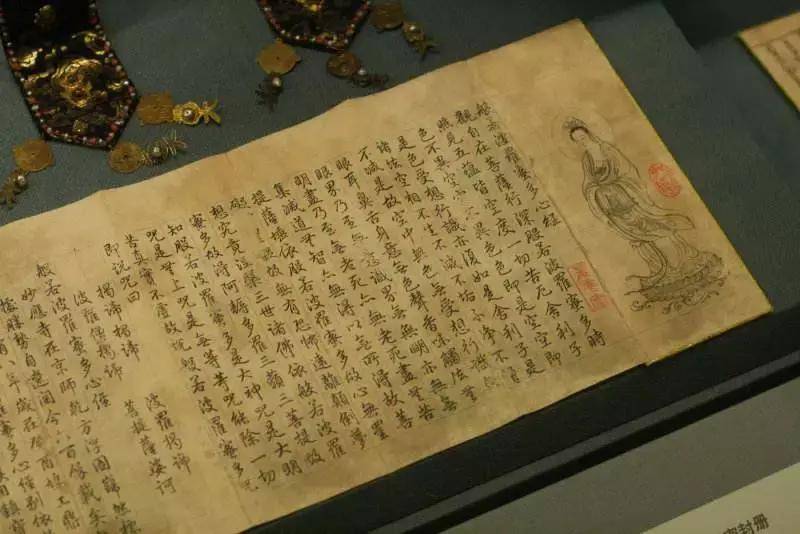 般若波羅蜜多心經
觀自在菩薩行深般若波羅蜜多時
照見五蘊皆空度一切苦厄舍利子
色不異空空不異色色即是空空即
是色受想行識亦復如是舍利子是
諸法空相不生不滅不垢不淨不增
不減是故空中無色無受想行識無
眼耳鼻舌身意無色聲香味觸法無
眼界乃至無意識界無無明亦無無
明盡乃至無老死亦無老死盡無苦
集滅道無智亦無得以無所得故菩
提薩埵依般若波羅蜜多故心無罣
礙無罣礙故無有恐怖遠離顛倒夢
想究竟涅槃三世諸佛依般若波羅
蜜多故得阿耨多羅三藐三菩提故
知般若波羅蜜多是大神咒是大明
咒是無上咒是無等等咒能除一切
苦真實不虛故說般若波羅蜜多咒
即說咒曰
揭諦揭諦 波羅揭諦
波羅僧揭諦 菩提薩婆訶
般若波羅蜜多心經
妙應寺在京師乾方浮圖巋然標
封册